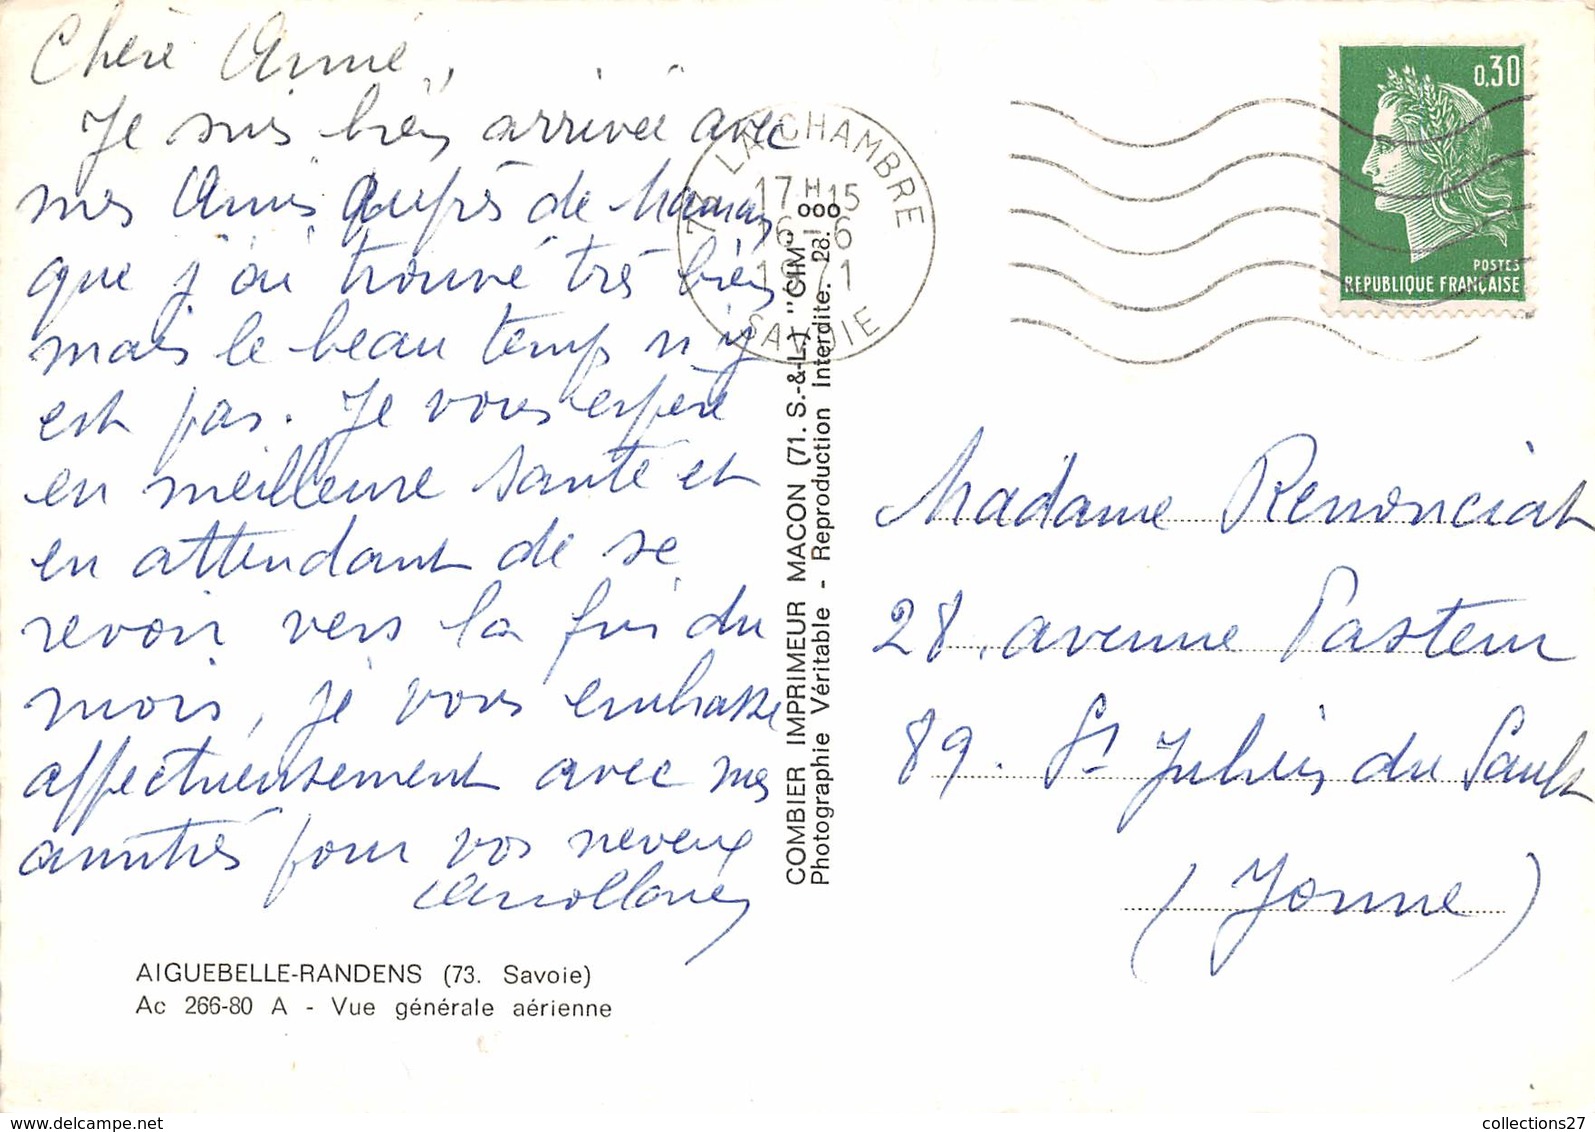 Chère Annie,
Je suis bien arrivée avec
mes Amis auprès de Maman
que j'ai trouvé très bien
mais le beau temps n'y
est pas. Je vous espère
en meilleure santé et
en attendant de se
revoir vers la fin du
mois, je vous embrasse
affectueusement avec mes
amitiés pour vos neveux
AIGUEBELLE-RANDENS (73. Savoie)
Ac 266-80 A - Vue générale aérienne
COMBIER IMPRIMEUR MACON (71. S.-&-L.) "CIM"
Photographie Véritable - Reproduction Interdite. 28.000
LA CHAMBRE
17H15
16-6
1971
SAVOIE
0,30
POSTES
REPUBLIQUE FRANÇAISE
Madame Renonciat
28, avenue Pasteur
89. St Julien du Sault
(Yonne)
collections27